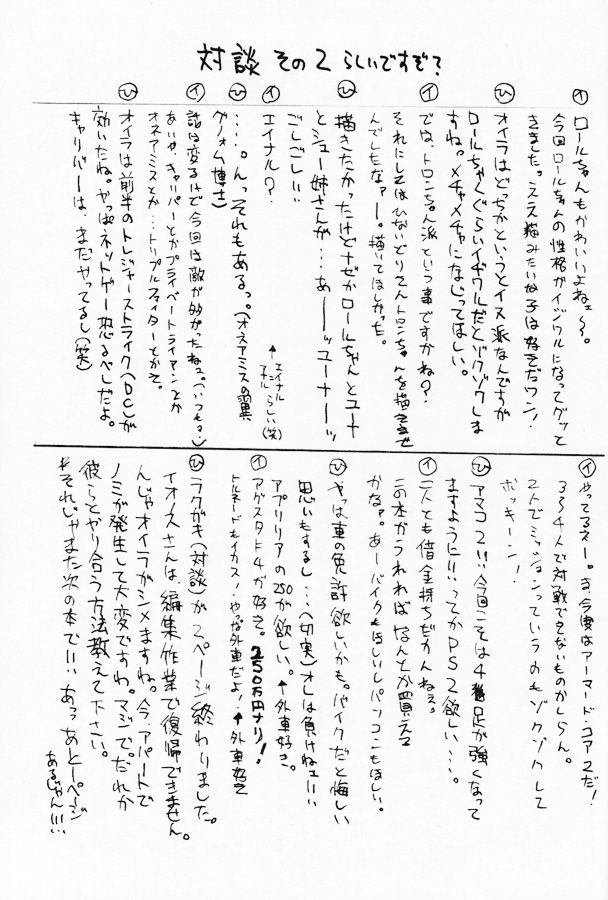 対談 その2 らしいですぞ?
イ ロールちゃんもかわいいよねェ〜。
今回ロールちゃんの性格がイジワルになってグッと
きました。ええ描みたいな子は好きだワン!
ひ オイラはどっちかというとイヌ派なんですが
ロールちゃんぐらいイヂワルだとゾクゾクしま
すね。メチャメチャになじってほしい。
イ では、トロンちゃん派という事ですかね?
それにしてはひないどりさんトロンちゃんを描きませ
んでしたなァー。描いてほしかった。
ひ 描きたかったけどナゼかロールちゃんとユーナ
とシュー姉さんが・・・あ――ッユーナ――ッ
ごしごし!!
イ エイナル?
↑エイナルらしい(笑)
ひ ・・・。んっそれもあるっ。(オネアミスの翼
グノォム博士)
イ 話は変るけど今回は敵が多かったねェ。(いつも?)
あいや、キャリバーとかプライベートライアンとか
オネアミスとか・・・トリプルファイターとかそ。
ひ オイラは前半のトレジャーストライク(DC)が
効いたね。やっぱネットゲー恐るべしだよ。
キャリバーは、まだやってるし(笑)
イ やってるネー。さ、今度はアーマード・コア2だ!
3、4人で対戦できないものかしらん。
2人でミッションっていうのもゾクゾクして
ボッキーン!
ひ アマコア2!!今回こそは4脚足が強くなって
ますように!!ってかPS2欲しい・・・。
イ 二人とも借金持ちだかんねェ。
この本がうれればなんとか買える
かなァ。あーバイクもほしいしパソコンもほしい。
ひ やっは車の免許欲しいかも。バイクだと悔しい
思いもするし・・・(切実)オレは負けねェ!!
アプリリアの250が欲しい。↑外車好き。
イ アグスタF4が好き。250万円ナリ!
トルネードもイカス!やな外車だよ!↑外車好き
ひ ラクガキ(対談)が2ページ終わりました。
イオヌスさんは、編集作業で復帰できません。
んじゃオイラがシメますね。今、アパートで
ノミが発生して大変ですね。マジで。だれか
彼らとやり合う方法教えて下さい。
*それじゃまた次の本で!!、あっあと一ページ
あるじゃん!!!